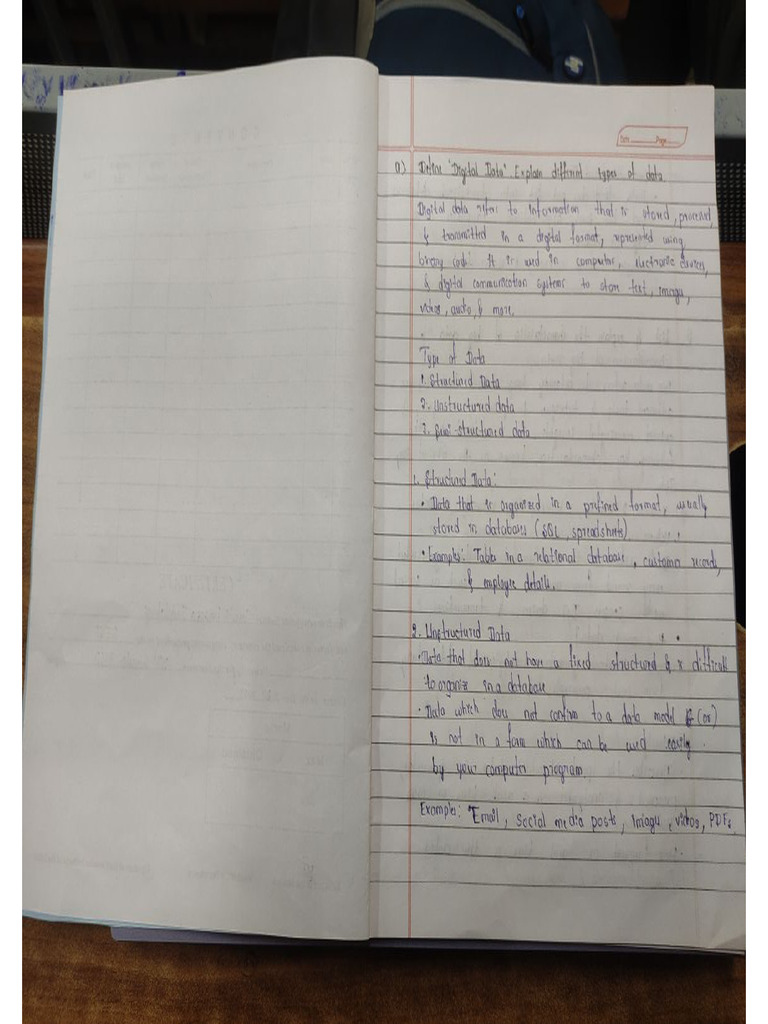 Date Page
1) Define "Digital Data". Explain different types of data
Digital data refers to information that is stored, processed,
& transmitted in a digital format, represented using
binary code. It is used in computer, electronic devices,
& digital communication systems to store text, images,
videos, audio, & more.
Type of Data
1. Structured Data
2. Unstructured data
3. semi-structured data
1. Structured Data:
• Data that is organized in a prefined format, usually
stored in databases (SQL, spreadsheets)
• Examples: Tables in a relational database, customer records,
& employee details.
2. Unstructured Data
• Data that does not have a fixed structured & is difficult
to organize in a database
• Data which does not confirm to a data model (or)
is not in a form which can be used easily
by your computer program
Example: Email, social media posts, images, videos, PDFs